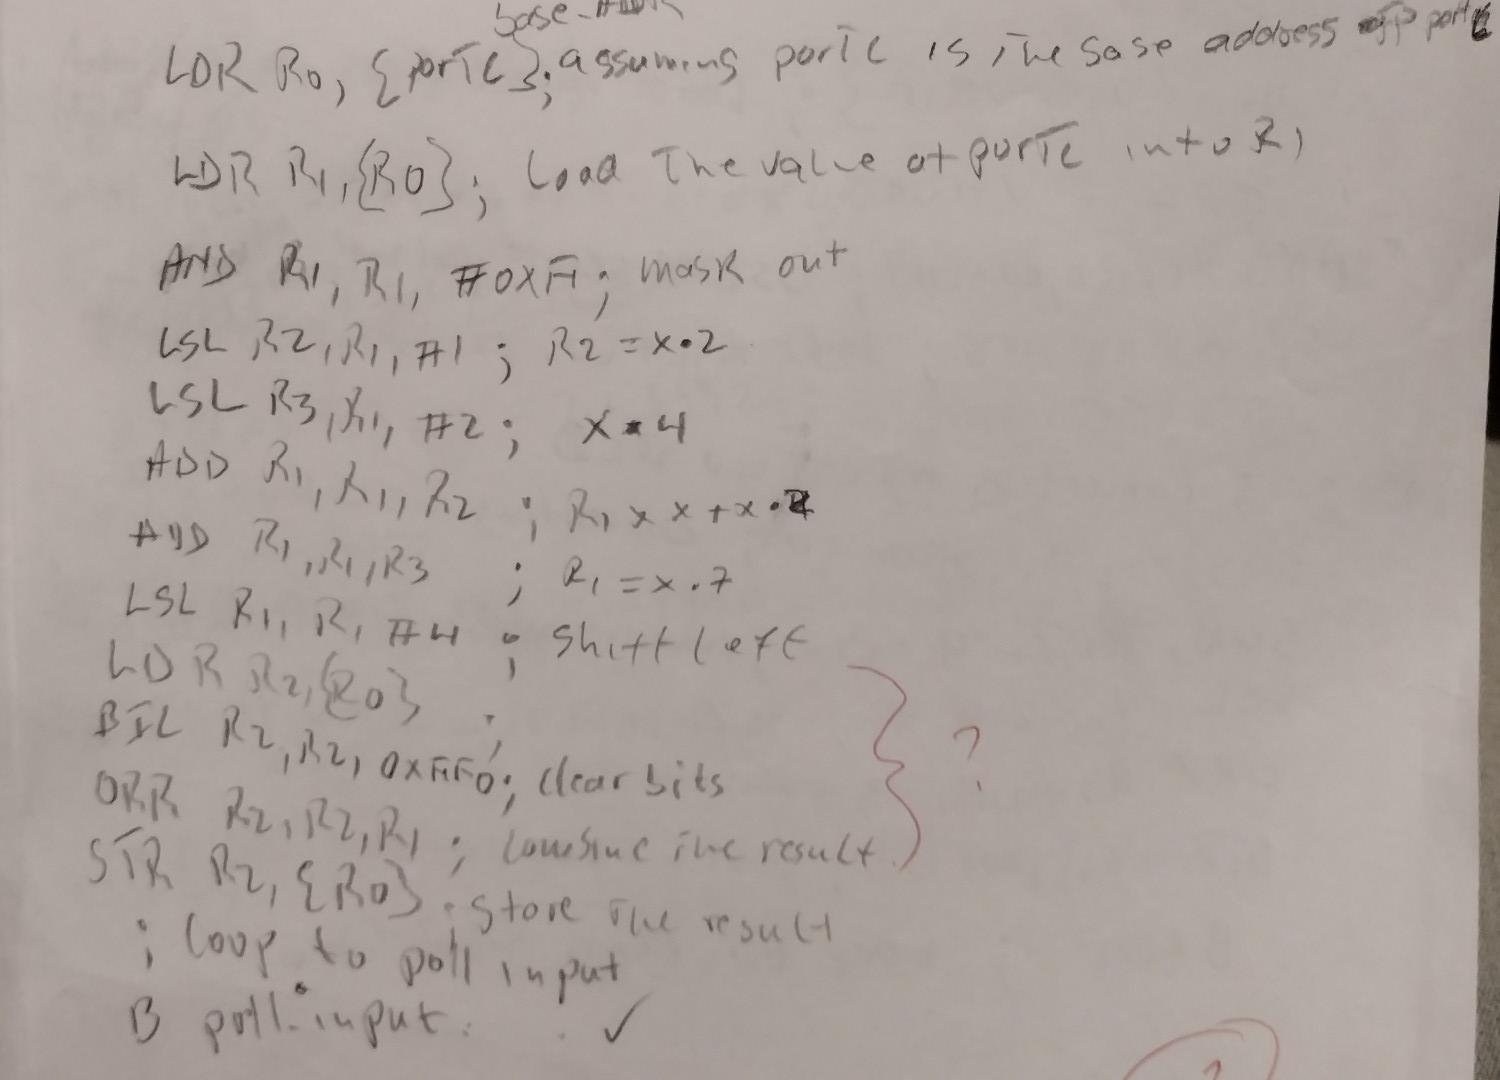 base-
LDR R0, {portC}; assuming portC is the base address of port
LDR R1, {R0}; Load The value at portC into R1
AND R1, R1, #0xF; mask out
LSL R2, R1, #1; R2 = x•2
LSL R3, R1, #2; x•4
ADD R1, R1, R2 ; R1 x x + x•2
ADD R1, R1, R3 ; R1 = x.7
LSL R1, R1 #4 ; shift left
LDR R2, {R0} ;
BIC R2, R2, 0xFF0; clear bits
} ?
ORR R2, R2, R1; combine the result.
STR R2, {R0}; store The result
; loop to poll input
B poll.input. ✓